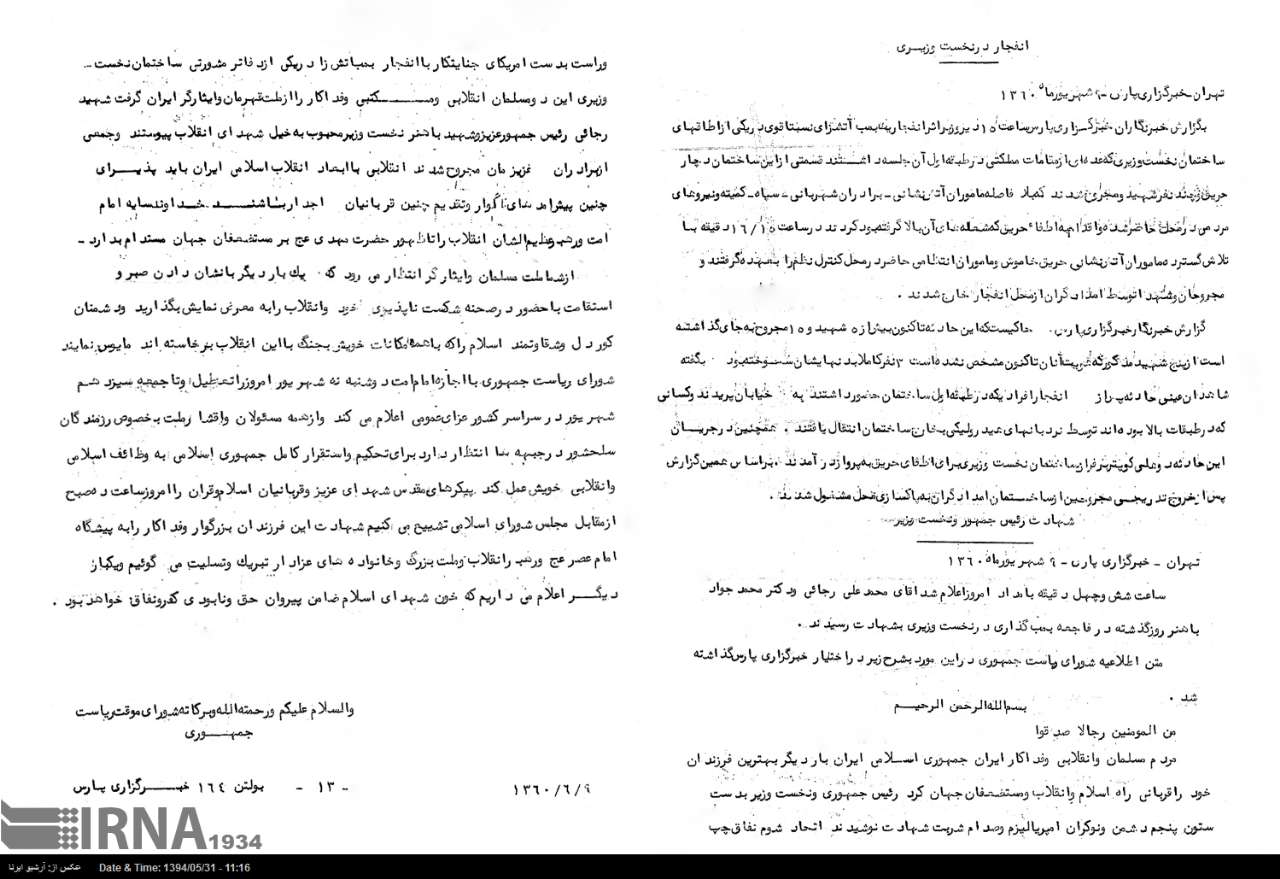 انفجار در نخست وزیری
تهران - خبرگزاری پارس - ۹ شهریورماه ۱۳۶۰
بگزارش خبرنگاران خبرگزاری پارس ساعت ۱۵ دیروز براثر انفجار یک بمب آتشزای نسبتا قوی در یکی از اطاقهای
ساختمان نخست وزیری که عده ای از مقامات مملکتی در طبقه اول آن جلسه داشتند قسمتی از این ساختمان دچار
حریق و چند نفر شهید و مجروح شدند که بلا فاصله ماموران آتش نشانی - برادران شهربانی - سپاه - کمیته و نیروهای
مردمی در محل حاضر شده و اقدام به اطفاء حریق که شعله های آن بالا گرفته بود کردند در ساعت ۱۶/۱۵ دقیقه با
تلاش گسترده ماموران آتش نشانی حریق خاموش و ماموران انتظامی حاضر در محل کنترل نظم را بعهده گرفتند و
مجروحان و شهدا توسط امدادگران از محل انفجار خارج شدند .
گزارش خبرنگار خبرگزاری پارس حاکیست که این حادثه تاکنون بیش از ۵ شهید و ۱۵ مجروح به جای گذاشته
است از پنج شهید مذکور که هویت آنان تاکنون مشخص نشده است ۳ نفر کاملا بدنهایشان سوخته بود بگفته
شاهدان عینی حادثه پس از انفجار افرادیکه در طبقه اول ساختمان حضور داشتند به خیابان پریدند و کسانی
که در طبقات بالا بوده اند توسط نردبانهای هیدرولیکی بخارج ساختمان انتقال یافتند . همچنین در جریان
این حادثه دو هلی کوپتر بر فراز ساختمان نخست وزیری برای اطفای حریق به پرواز در آمدند . براساس همین گزارش
پس از خروج تدریجی مجروحین از ساختمان امدادگران به پاکسازی محل مشغول شدند .
شهادت رئیس جمهور و نخست وزیر
تهران - خبرگزاری پارس - ۹ شهریورماه ۱۳۶۰
ساعت شش و چهل دقیقه بامداد امروز اعلام شد آقای محمد علی رجائی و دکتر محمد جواد
باهنر روز گذشته در فاجعه بمب گذاری در نخست وزیری بشهادت رسیدند .
متن اطلاعیه شورای ریاست جمهوری در این مورد بشرح زیر در اختیار خبرگزاری پارس گذاشته
شد .
بسم الله الرحمن الرحیم
من المومنین رجالا صدقوا
مردم مسلمان و انقلابی وفداکار ایران جمهوری اسلامی ایران بار دیگر بهترین فرزندان
خود را قربانی راه اسلام و انقلاب و مستضعفان جهان کرد رئیس جمهوری و نخست وزیر بدست
ستون پنجم دشمن و نوکران امپریالیزم و صدام شربت شهادت نوشیدند اتحاد شوم نفاق چپ
وراست بدست امریکای جنایتکار با انفجار بمب آتش زا در یکی از دفاتر مشورتی ساختمان نخست -
وزیری این دو مسلمان انقلابی و مکتبی وفداکار را از ملت قهرمان و ایثارگر ایران گرفت شهید
رجائی رئیس جمهور عزیز و شهید باهنر نخست وزیر محبوب به خیل شهدای انقلاب پیوستند و جمعی
از برادران عزیزمان مجروح شدند انقلابی با ابعاد انقلاب اسلامی ایران باید پذیرای
چنین پیش‌آمدهای ناگوار و تقدیم چنین قربانیان باشند خداوند سایه امام
امت و رهبر عظیم الشان انقلاب را تا ظهور حضرت مهدی عج بر مستضعفان جهان مستدام بدارد -
از شما ملت مسلمان و ایثارگر انتظار می رود که یک بار دیگر با نشان دادن صبر و
استقامت با حضور در صحنه شکست ناپذیری خود وانقلاب را به معرض نمایش بگذارید و دشمنان
کوردل و شقاوتمند اسلام را که با همه امکانات خویش بجنگ با این انقلاب برخاسته اند مایوس نمایند
شورای ریاست جمهوری با اجازه امام امت دوشنبه نه شهریور امروز را تعطیل و تا جمعه سیزدهم
شهریور در سراسر کشور عزای عمومی اعلام می کند و از همه مسئولان و اقشار ملت بخصوص رزمندگان
سلحشور در جبهه ها انتظار دارد برای تحکیم و استقرار کامل جمهوری اسلامی به وظائف اسلامی
وانقلابی خویش عمل کند پیکرهای مقدس شهدای عزیز و قربانیان اسلام و قران را امروز ساعت ده صبح
از مقابل مجلس شورای اسلامی تشییع می کنیم شهادت این فرزندان بزرگوار وفداکار را به پیشگاه
امام عصر عج و رهبر انقلاب و ملت بزرگ و خانواده های عزادار تبریک و تسلیت می گوئیم و یکبار
دیگر اعلام می داریم که خون شهدای اسلام ضامن پیروان حق و نابودی کفر و نفاق خواهد بود .
والسلام علیکم ورحمته الله وبرکاته شورای موقت ریاست
جمهوری
۱۳۶۰/۶/۹ - ۱۳ - بولتن ۱۶۴ خبرگزاری پارس
IRNA 1934
عکس از: آرشیو ایرنا Date & Time: 1394/05/31 - 11:16